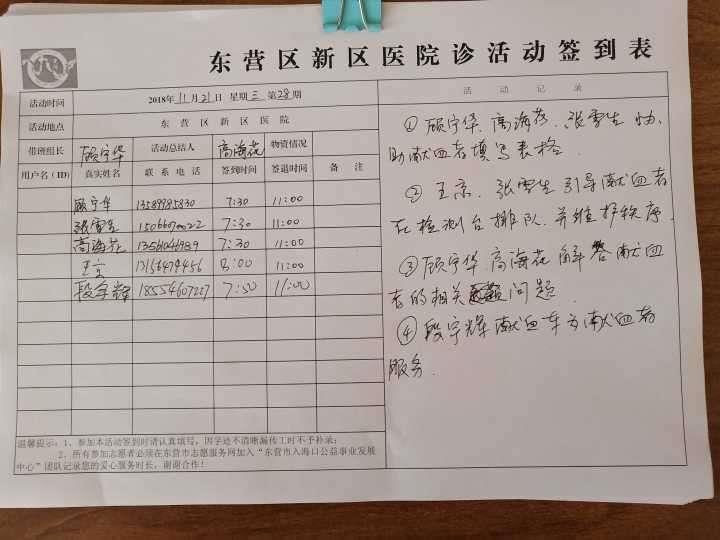 东营区新区医院诊活动签到表
活动时间 2018年11月21日 星期三 第28期 活动记录
活动地点 东营区新区医院
带班组长 顾宇华 活动总结人 高海花 物资情况
用户名(ID) 真实姓名 联系电话 签到时间 签退时间 备注
顾宇华 13589985830 7:30 11:00
张雪生 15066070022 7:30 11:00
高海花 7:30 11:00
王京 13156479456 8:00 11:00
段宇辉 18554607227 7:50 11:00
①顾宇华.高海花.张雪生协
助献血者填写表格.
②王京.张雪生引导献血者
在检测台排队.并维护秩序.
③顾宇华.高海花解答献血
者的相关问题.
④段宇辉献血车为献血者
服务.
温馨提示:1、参加本活动签到时请认真填写,因字迹不清晰漏传工时不予补录;
2、所有参加志愿者必须在东营市志愿服务网加入“东营市入海口公益事业发展
中心”团队记录您的爱心服务时长,谢谢合作!